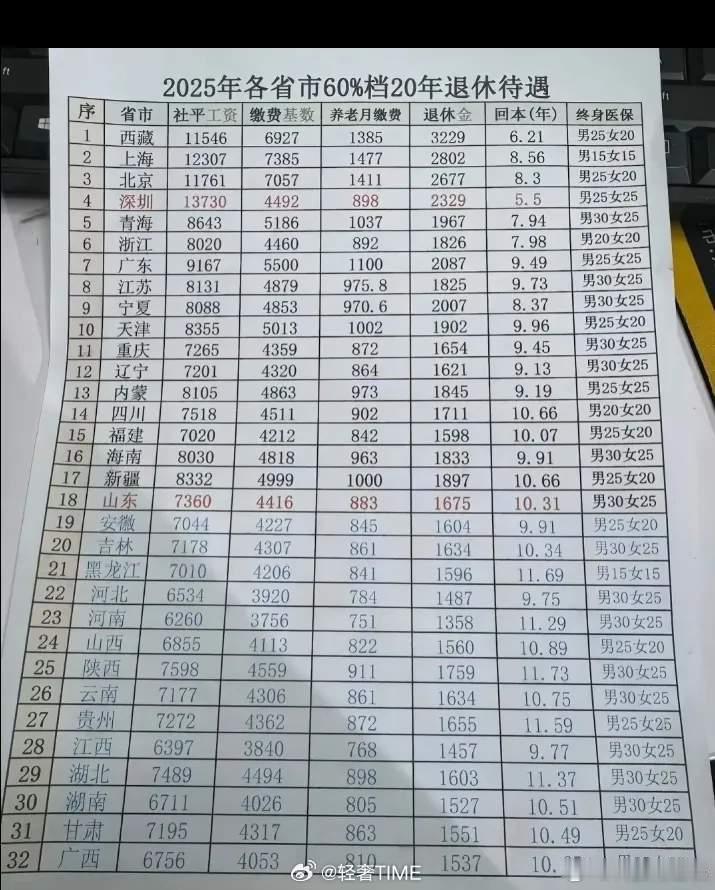 2025年各省市60%档20年退休待遇
序 省市 社平工资 缴费基数 养老月缴费 退休金 回本(年) 终身医保
1 西藏 11546 6927 1385 3229 6.21 男25女20
2 上海 12307 7385 1477 2802 8.56 男15女15
3 北京 11761 7057 1411 2677 8.3 男25女20
4 深圳 13730 4492 898 2329 5.5 男25女25
5 青海 8643 5186 1037 1967 7.94 男30女25
6 浙江 8020 4460 892 1826 7.98 男20女20
7 广东 9167 5500 1100 2087 9.49 男25女25
8 江苏 8131 4879 975.8 1825 9.73 男30女25
9 宁夏 8088 4853 970.6 2007 8.37 男30女25
10 天津 8355 5013 1002 1902 9.96 男25女20
11 重庆 7265 4359 872 1654 9.45 男30女25
12 辽宁 7201 4320 864 1621 9.13 男30女25
13 内蒙 8105 4863 973 1845 9.19 男25女25
14 四川 7518 4511 902 1711 10.66 男20女20
15 福建 7020 4212 842 1598 10.07 男25女20
16 海南 8030 4818 963 1833 9.91 男30女25
17 新疆 8332 4999 1000 1897 10.66 男25女20
18 山东 7360 4416 883 1675 10.31 男30女25
19 安徽 7044 4227 845 1604 9.91 男25女20
20 吉林 7178 4307 861 1634 10.34 男30女25
21 黑龙江 7010 4206 841 1596 11.69 男15女15
22 河北 6534 3920 784 1487 9.75 男30女25
23 河南 6260 3756 751 1358 11.29 男30女25
24 山西 6855 4113 822 1560 10.89 男25女20
25 陕西 7598 4559 911 1759 11.73 男30女25
26 云南 7177 4306 861 1634 10.75 男30女25
27 贵州 7272 4362 872 1655 11.59 男25女25
28 江西 6397 3840 768 1457 9.77 男30女25
29 湖北 7489 4494 898 1603 11.37 男30女25
30 湖南 6711 4026 805 1527 10.51 男30女25
31 甘肃 7195 4317 863 1551 10.49 男25女20
32 广西 6756 4053 810 1537 10.
@轻奢TIME